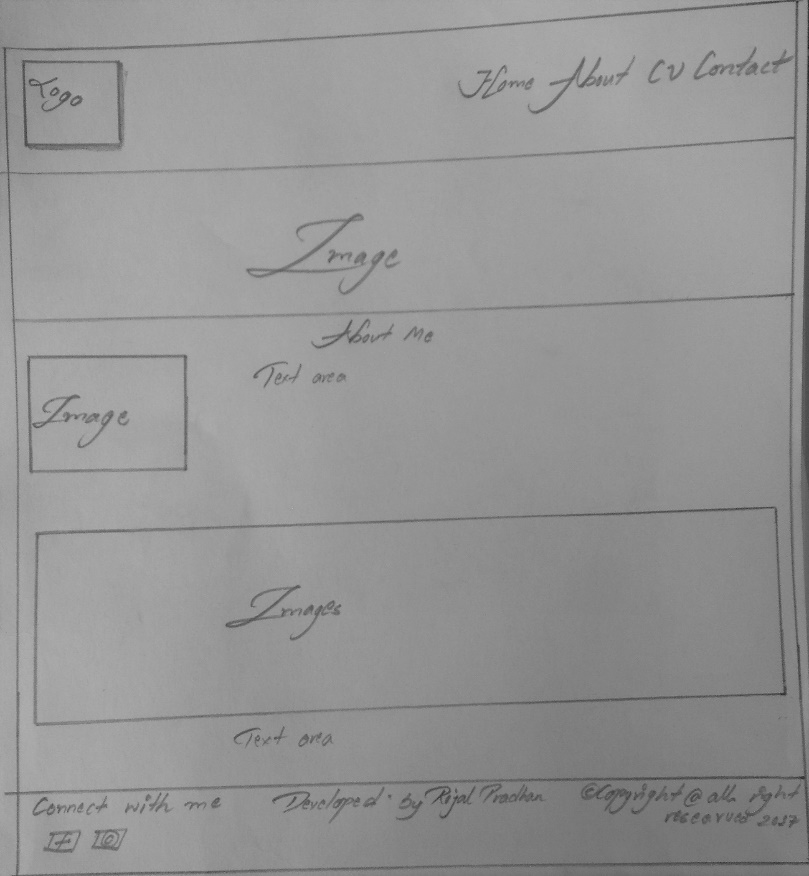 Logo
Home About CV Contact
Image
About Me
Text area
Image
Images
Text area
Connect with me Developed by Rijal Pradhan ©Copyright @ all right
reserved 2017
f